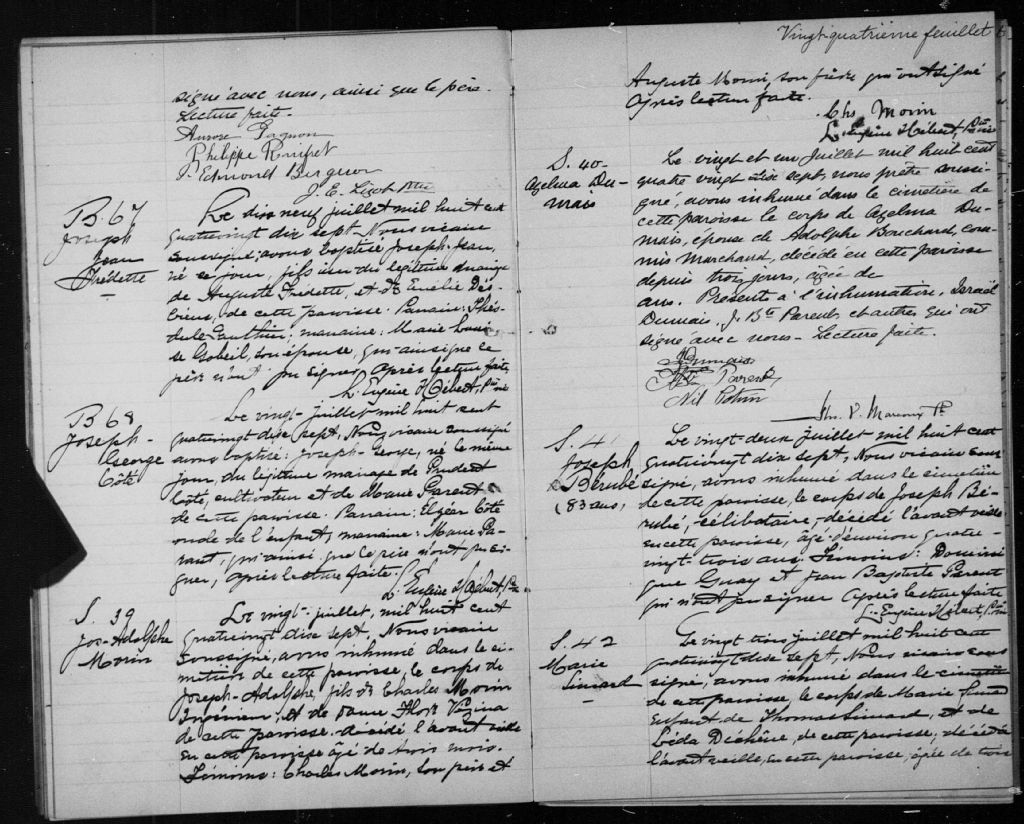 signé avec nous, ainsi que le père.
Lecture faite.
Aurore Gagnon
Philippe
J. Edmond Bergeron
J. E. Ptre
B. 67
Joseph
Jean
Fredette
Le dix neuf juillet mil huit cent
quatrevingt dix sept, Nous vicaire
soussigné avons baptisé Joseph-Jean,
né ce jour, fils du légitime mariage
de Auguste Fredette, et de Emélie Des-
biens, de cette paroisse. Parrain: Thés-
dule Gauthier; marraine: Marie Loui-
se Gobeil, son épouse, qui ainsi que le
père n'ont pu signer, après lecture faite,
L. Eugène Hébert, Ptre
B 68
Joseph-
George
Côté
Le vingt juillet mil huit cent
quatrevingt dix sept, Nous vicaire soussigné
avons baptisé: Joseph-George, né le même
jour, du légitime mariage de Prudent
Côté, cultivateur et de Marie Parent
de cette paroisse. Parrain: Elzéar Côté
oncle de l'enfant, marraine: Marie Pa-
rent, qui ainsi que le père n'ont pu si-
gner, après lecture faite.
L. Eugène Hébert, Ptre
S. 39
Jos-Adolphe
Morin
Le vingt juillet, mil huit cent
quatrevingt dix sept, Nous vicaire
soussigné, avons inhumé dans le ci-
metière de cette paroisse, le corps de
Joseph-Adolphe, fils de Charles Morin
Ingénieur, et de dame Flore Vézina
de cette paroisse, décédé l'avant veille
en cette paroisse âgé de trois mois.
Témoins: Charles Morin, son père et
Vingt-quatrième feuillet
Auguste Morin, son frère qui ont signé
Après lecture faite.
Chs Morin
L. Eugène Hébert, Ptre
S. 40-
Azelma Du-
mais
Le vingt et un Juillet mil huit cent
quatre vingt dix sept, nous prêtre soussi-
gné, avons inhumé dans le cimetière de
cette paroisse le corps de Azelma Du-
mais, épouse de Adolphe Bouchard, com-
mis Marchand, décédée en cette paroisse
depuis trois jours, âgée de
ans. Présents à l'inhumation, Israël
Dumais, J. Bte Parent et autres qui ont
signé avec nous. Lecture faite.
Dumais
Parent
Nil
V. Ptre
S. 41
Joseph
Bérubé
(83 ans,
Le vingt-deux juillet mil huit cent
quatrevingt dix sept, Nous vicaire sous
signé, avons inhumé dans le cimetière
de cette paroisse, le corps de Joseph Bé-
rubé, célibataire, décédé l'avant veille
en cette paroisse, âgé d'environ quatre-
vingt-trois ans. Témoins: Domini-
que Guay et Jean Baptiste Parent
qui n'ont pu signer Après lecture faite
L. Eugène Hébert, Ptre
S. 42
Marie
Simard
Le vingt trois juillet mil huit cent
quatrevingt dix sept, Nous vicaire sous
signé, avons inhumé dans le cimetière
de cette paroisse, le corps de Marie Simard
Enfant de Thomas Simard, et de
Léda Dechêne, de cette paroisse, décédée
l'avant veille, en cette paroisse, âgée de trois